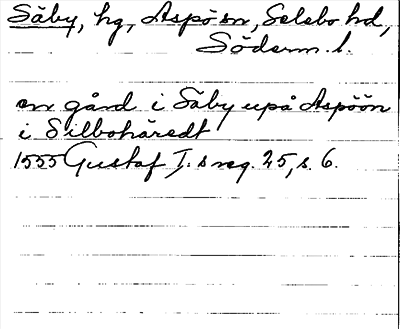 Säby, hg, Aspö sn, Selebo hd,
Söderm. l.
en gård i Säby upå Aspöön
i Silbohäredt
1555 Gustaf I:s reg. 25, s. 6.